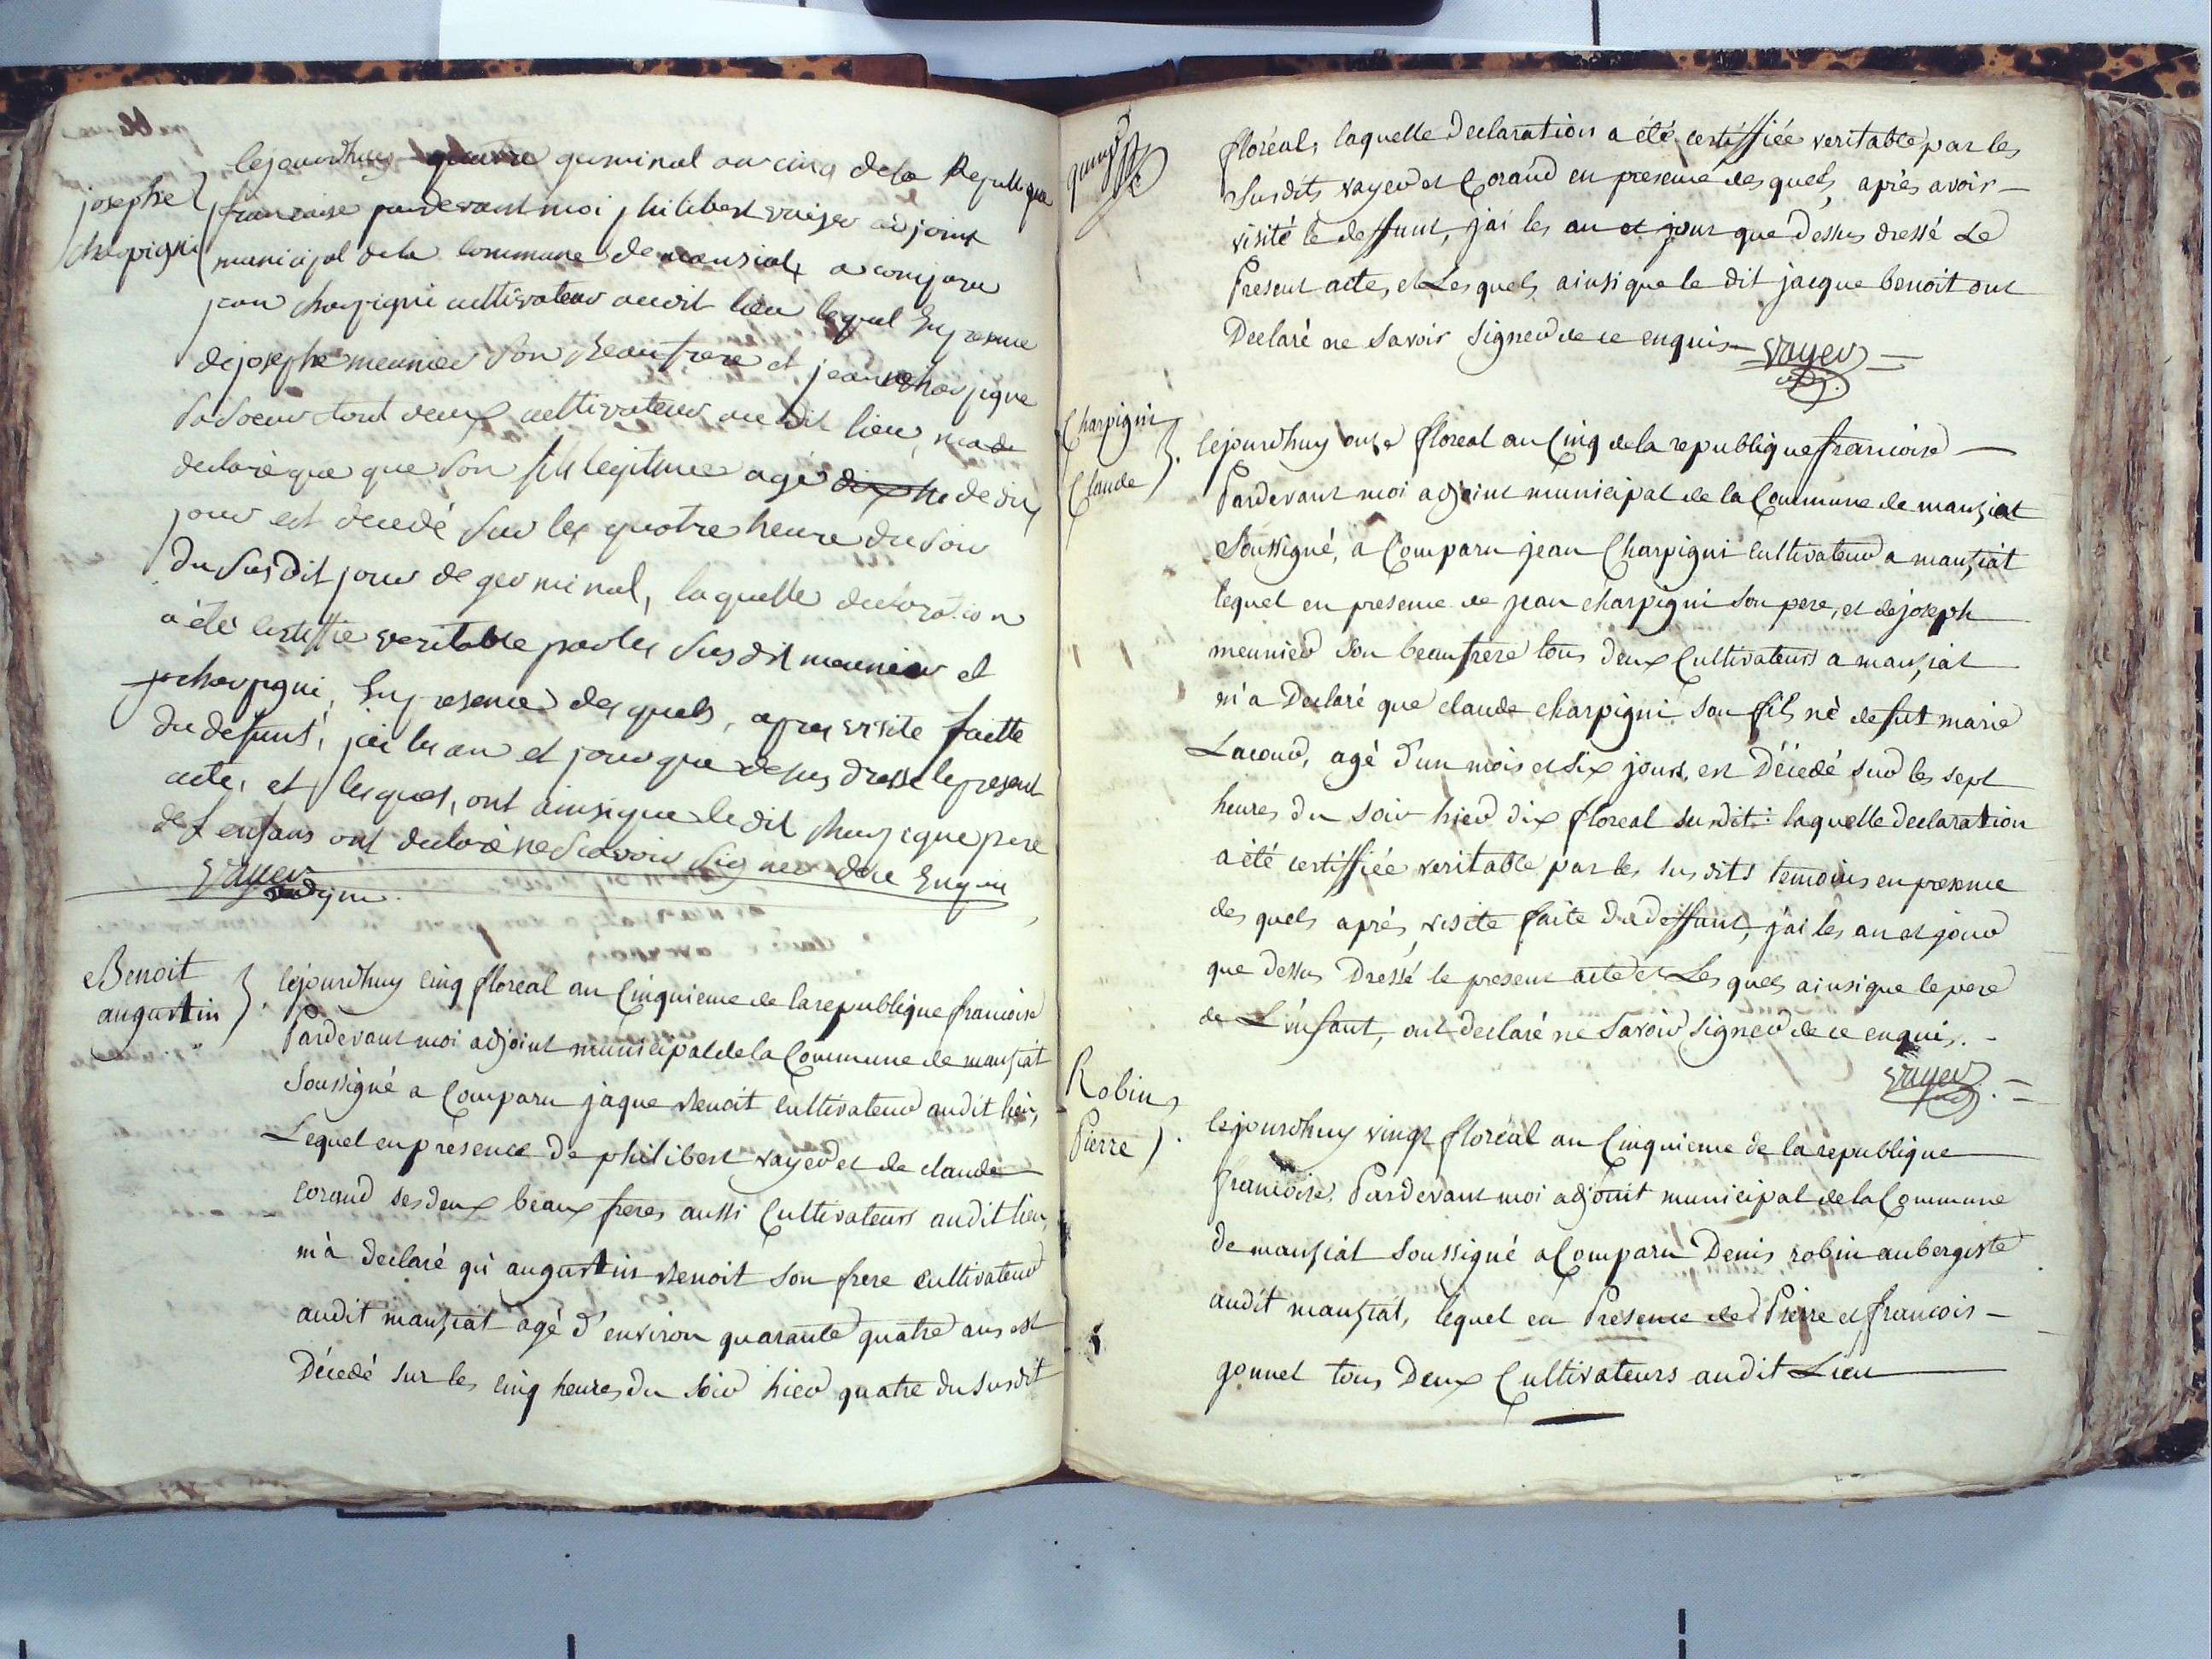 josephe
charpigni
lejourdhuy quatre germinal an cinq de la Republique
francaise pardevant moi philibert vaÿer adjoint
municipal de la commune de mansiat a comparu
jean charpigni cultivateur audit lieu lequel En presence
de josephe meunier son Beaufrere et jeanne charpigne
sa soeur tout deux cultivateur au dit lieu, ma de
declaré que que son fils legitime agé dix he de dix
jour est decedé sur les quatre heure du soir
du susdit jour de germinal, laquelle declaration
a été certiffié veritable par les susdit meunier et
charpigni, En presence desquels, apres visite faitte
du defunt, jai les an et jour que desus dressé le present
acte, et lesquels, ont ainsi que le dit charpigne pere
de l enfans ont declaré ne scavoir signer de ce Enquis
vaÿer
adjm
Benoit
augustin
lejourdhuy cinq floreal an Cinquieme de la republique francoise
Pardevant moi adjoint municipal de la Commune de mansiat
Soussigné a Comparu jaque Benoit Cultivateur audit lieu,
Lequel en présence de philibert vayer et de claude
corand ses deux beaux freres aussi Cultivateurs audit lieu,
m'a declaré qu'augustin Benoit son frere cultivateur
audit mansiat agé d'environ quarante quatre ans est
Décedé sur les cinq heures du soir hier quatre du susdit
floréal, laquelle Declaration a été certiffiée veritable par les
Susdits vayer et Corand en presence desquels, après avoir
visité le deffunt, j'ai les an et jour que dessus dressé Le
Present acte, et Lesquels, ainsi que le dit jacque benoit ont
Declaré ne Savoir Signer de ce enquis vayer
Charpigni
Claude
lejourdhuy onze floreal an Cinq de la republique francoise
Pardevant moi adjoint municipal de la Commune de mansiat
Soussigné, a Comparu jean Charpigni Cultivateur a mansiat
lequel en presence de jean charpigni Son pere, et de joseph
meunier Son beaufrere tous deux Cultivateurs a mansiat
m'a Declaré que claude charpigni son fils né de fut marie
Lacour, agé d'un mois et six jours, est Décedé sur les sept
heures du soir hier dix floreal susdit : laquelle declaration
a été certiffiée veritable par les susdits temoins en presence
des quels après visite faite du deffunt, j'ai les an et jour
que dessus Dressé le present acte et Les quels ainsi que le pere
de L'enfant, ont declaré ne Savoir signer de ce enquis.
vayer
Robin
Pierre
lejourdhuy vingt floréal an Cinquieme de la republique
francoise, Pardevant moi adjoint municipal de la Commune
de mansiat Soussigné a Comparu Denis robin aubergiste
audit mansiat, lequel en Présence de Pierre et francois
gonnet tous Deux Cultivateurs audit Lieu